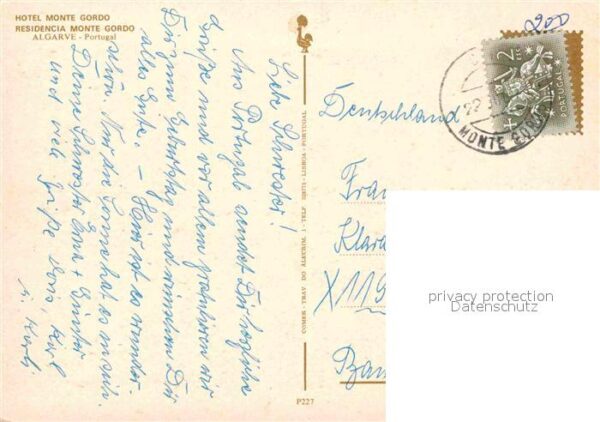 HOTEL MONTE GORDO
RESIDENCIA MONTE GORDO
ALGARVE - Portugal
Liebe Schwester!
Aus Portugal sendet Dir herzliche
Grüße und vor allem gratulieren wir
Dir zum Geburtstag und wünschen Dir
alles Gute. - Hier ist es wunder-
schön. Nur die Sonne hat es in sich.
Deine Schwester + Günter
und viele Grüße
COMER - TRAV. DO ALECRIM, 1 - TELF. - LISBOA - PORTUGAL
P227
200
2
PORTUGAL
22
MONTE GORDO
Deutschland
Frau
Klara
X119
privacy protection
Datenschutz